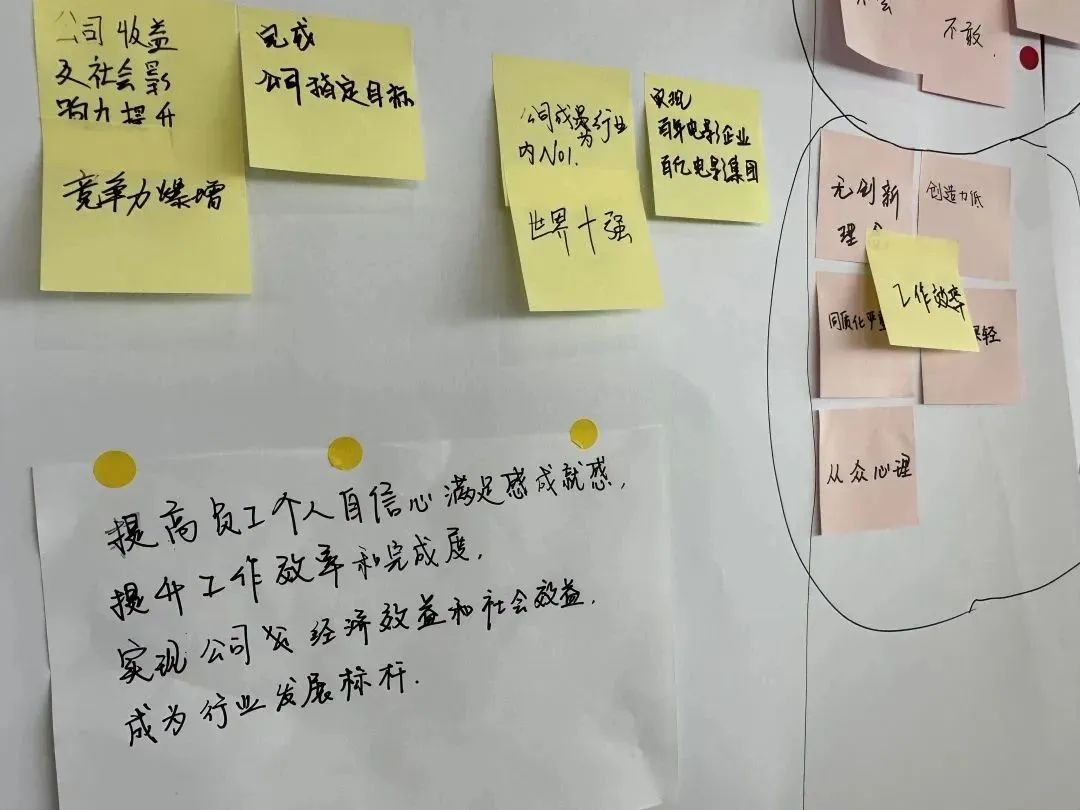 公司收益
及社会影
响力提升
竞争力爆增
完成
公司稳定目标
公司成为行业
内NO1.
世界十强
实现
百年电影企业
百亿电影集团
不敢.
无创新
理
创造力低
工作效率
同质化严
轻
从众心理
提高员工个人自信心满足感成就感,
提升工作效率和完成度,
实现公司 经济效益和社会效益,
成为行业发展标杆.